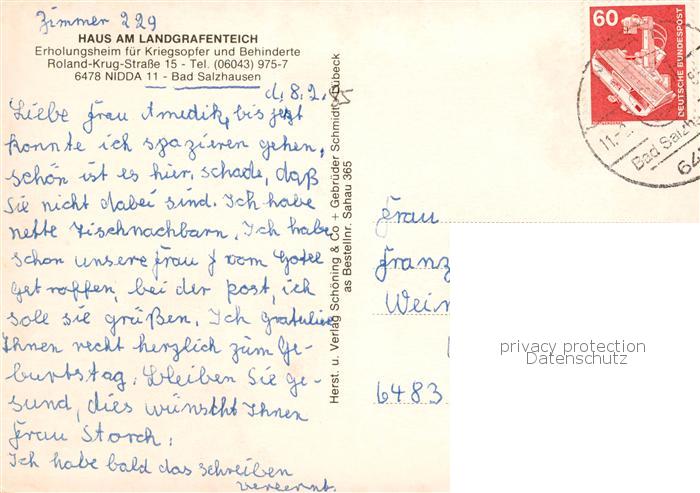 Zimmer 229
HAUS AM LANDGRAFENTEICH
Erholungsheim für Kriegsopfer und Behinderte
Roland-Krug-Straße 15 - Tel. (06043) 975-7
6478 NIDDA 11 - Bad Salzhausen
d. 8.2.
Liebe Frau Amedik, bis jetzt
konnte ich spazieren gehen,
schön ist es hier, schade, daß
Sie nicht dabei sind. Ich habe
nette Tischnachbarn. Ich habe
schon unsere Frau J vom Hotel
getroffen, bei der Post, ich
soll sie grüßen. Ich gratuliere
Ihnen recht herzlich zum Ge-
burtstag. Bleiben Sie ge-
sund, dies wünscht Ihnen
Frau Storch.
Ich habe bald das schreiben
verlernt.
Herst. u. Verlag Schöning & Co + Gebrüder Schmidt - Lübeck
as Bestellnr. Sahau 365
60
DEUTSCHE BUNDESPOST
11.-
Bad Salzha
Frau
Franz
Wein
6483
privacy protection
Datenschutz